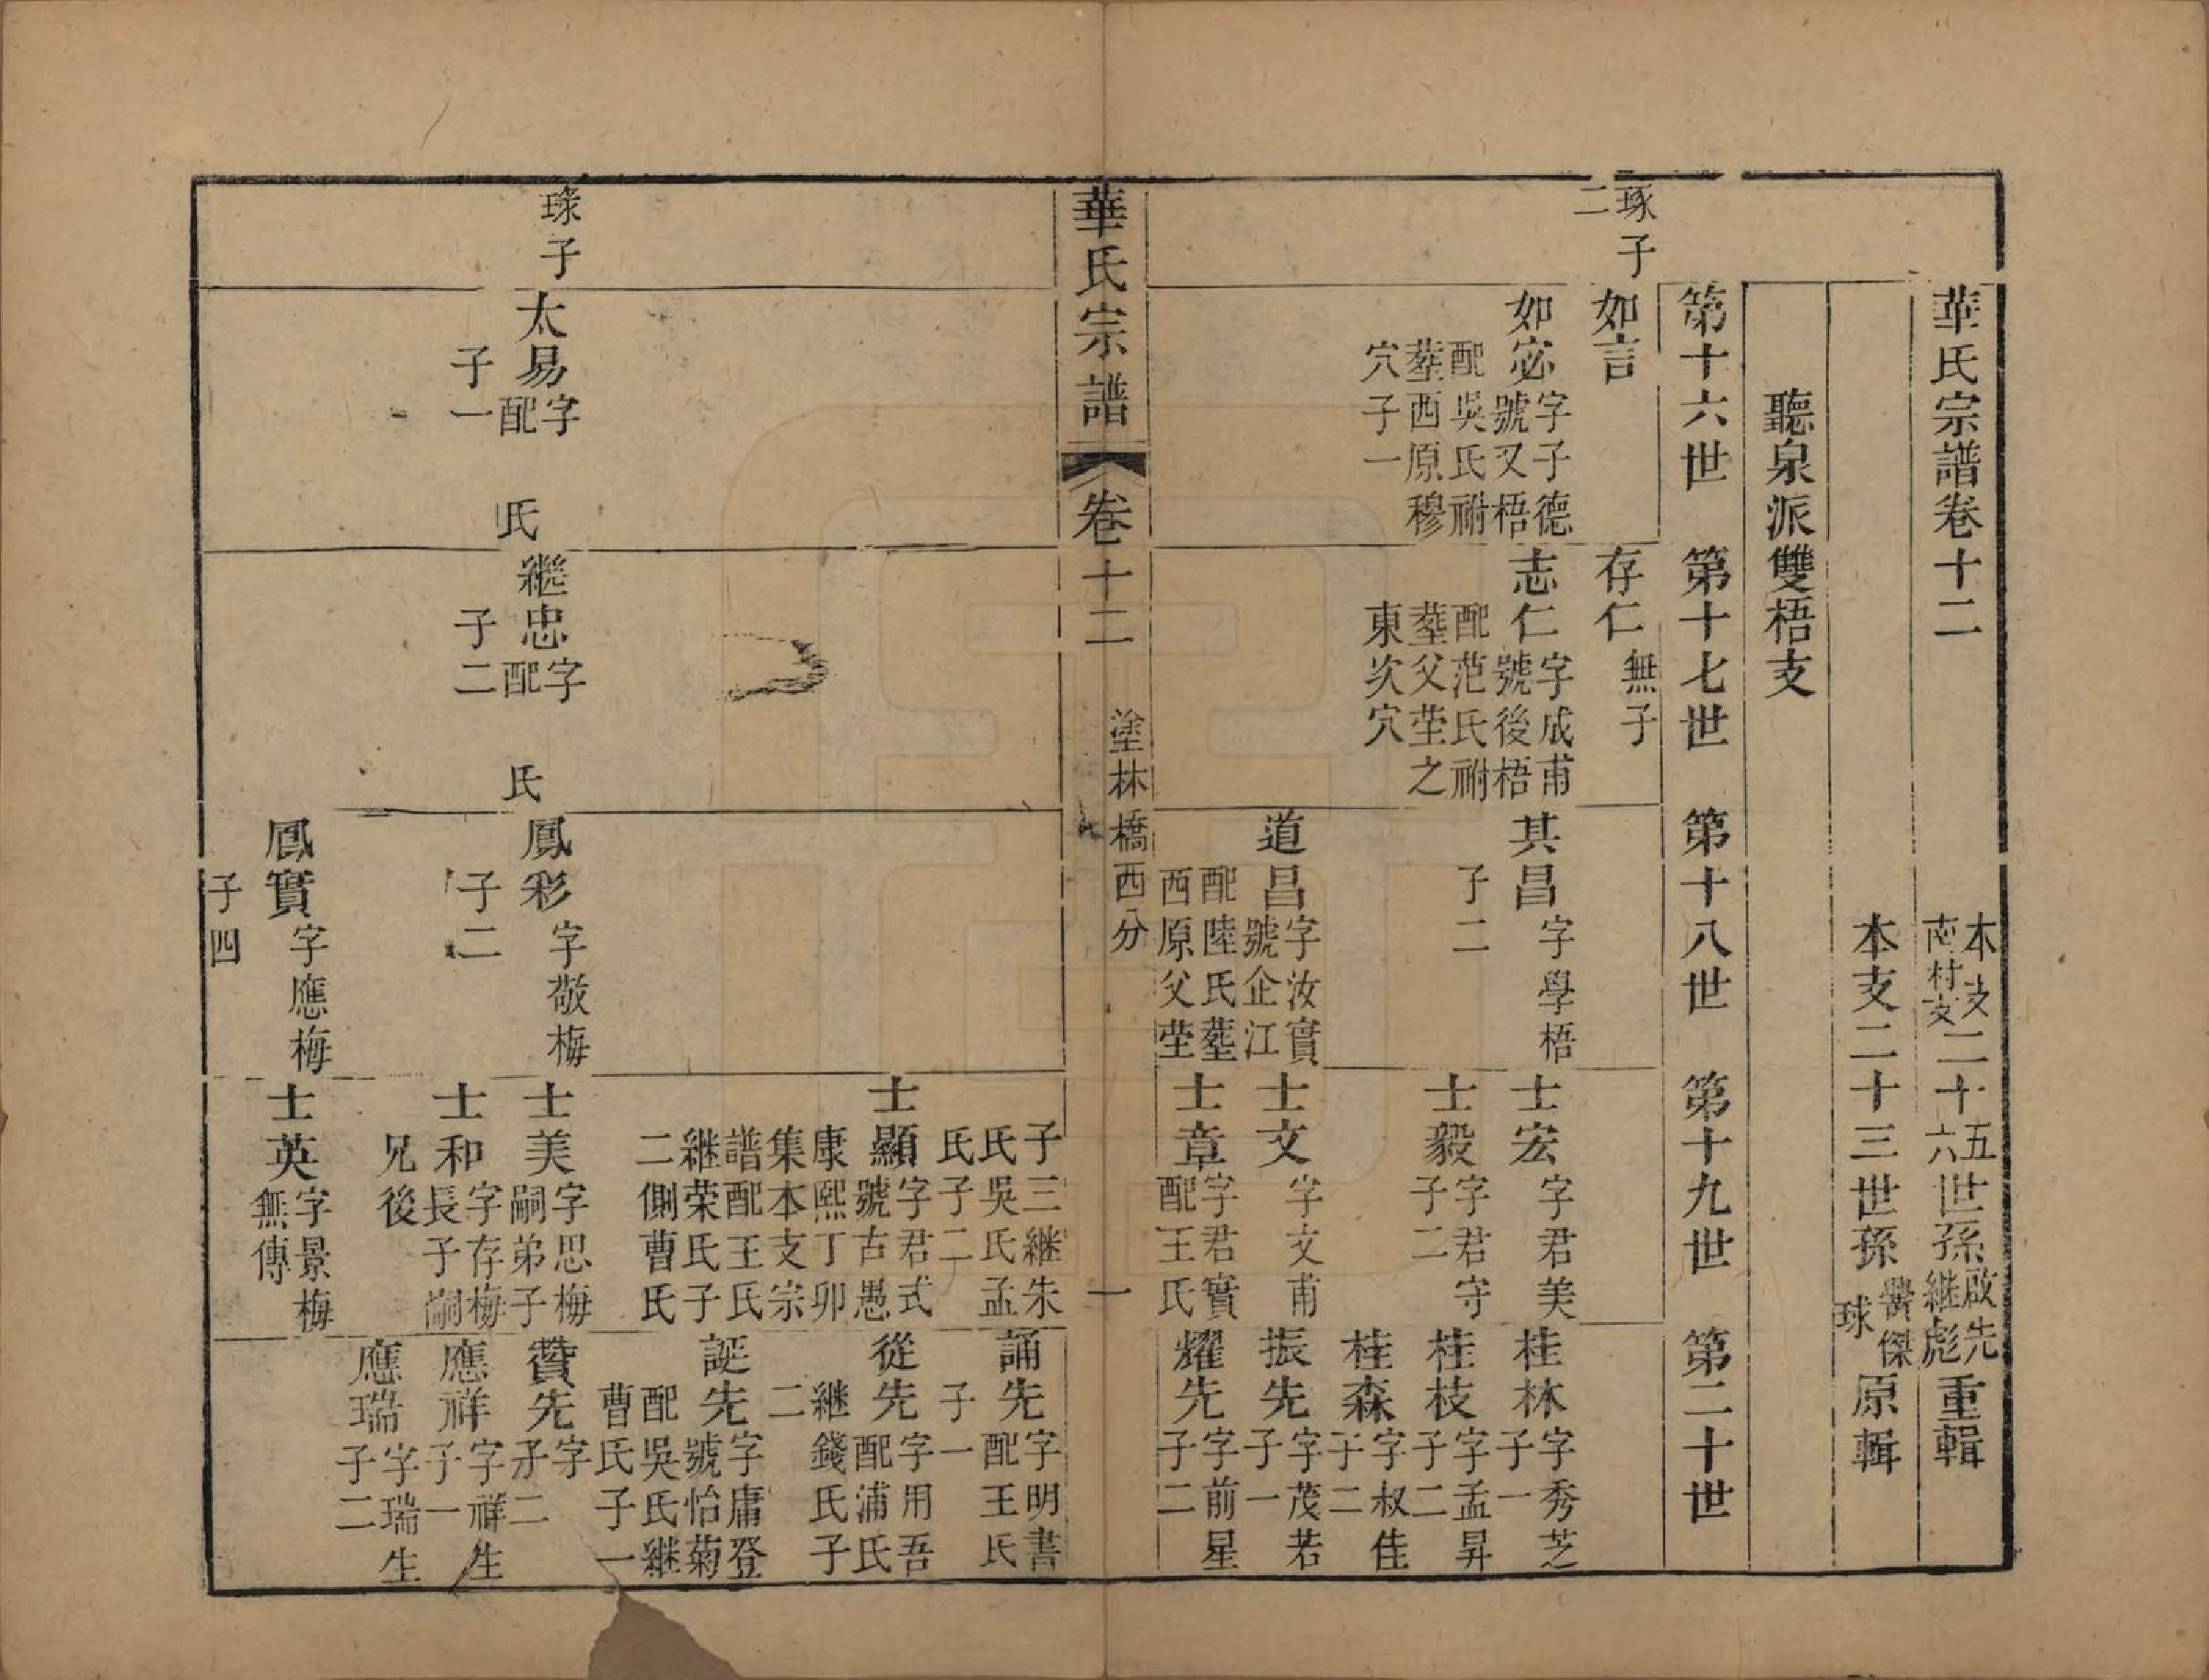 華氏宗譜卷十二
本支二十五世孫啟先
南村支二十六世孫継彪
重輯
本支二十三世孫
譽傑
球
原輯
聽泉派雙梧支
第十六世
第十七世
第十八世
第十九世
第二十世
琢子
二
如言
存仁
無子
如宓
字子德
號又梧
配吳氏祔
塟西原穆
穴子一
志仁
字成甫
號後梧
配范氏祔
塟父塋之
東次穴
其昌
字學梧
子二
士宏
字君美
桂林
字秀芝
子一
桂枝
字孟昇
子二
士毅
字君守
子二
桂森
字叔佳
子二
道昌
字汝實
號企江
配陸氏塟
西原父塋
士文
字文甫
振先
字茂若
子一
士章
字君實
配王氏
耀先
字前星
子二
華氏宗譜
卷十二
塗林橋西分
一
子三継朱
氏吳氏孟
氏子二
誦先
字明書
配王氏
子一
士顯
字君式
號古愚
康熙丁卯
集本支宗
譜配王氏
継荣氏子
二側曹氏
從先
字用吾
配浦氏
継錢氏子
二
誕先
字庸登
號怡菊
配吳氏継
曹氏子一
琭子
太易
字
配氏
子一
継忠
字
配氏
子二
鳳彩
字敬梅
子二
士美
字思梅
嗣弟子
贊先
字
子二
士和
字存梅
長子嗣
兄後
應祥
字祥生
子一
應瑞
字瑞生
子二
鳳實
字應梅
子四
士英
字景梅
無傳